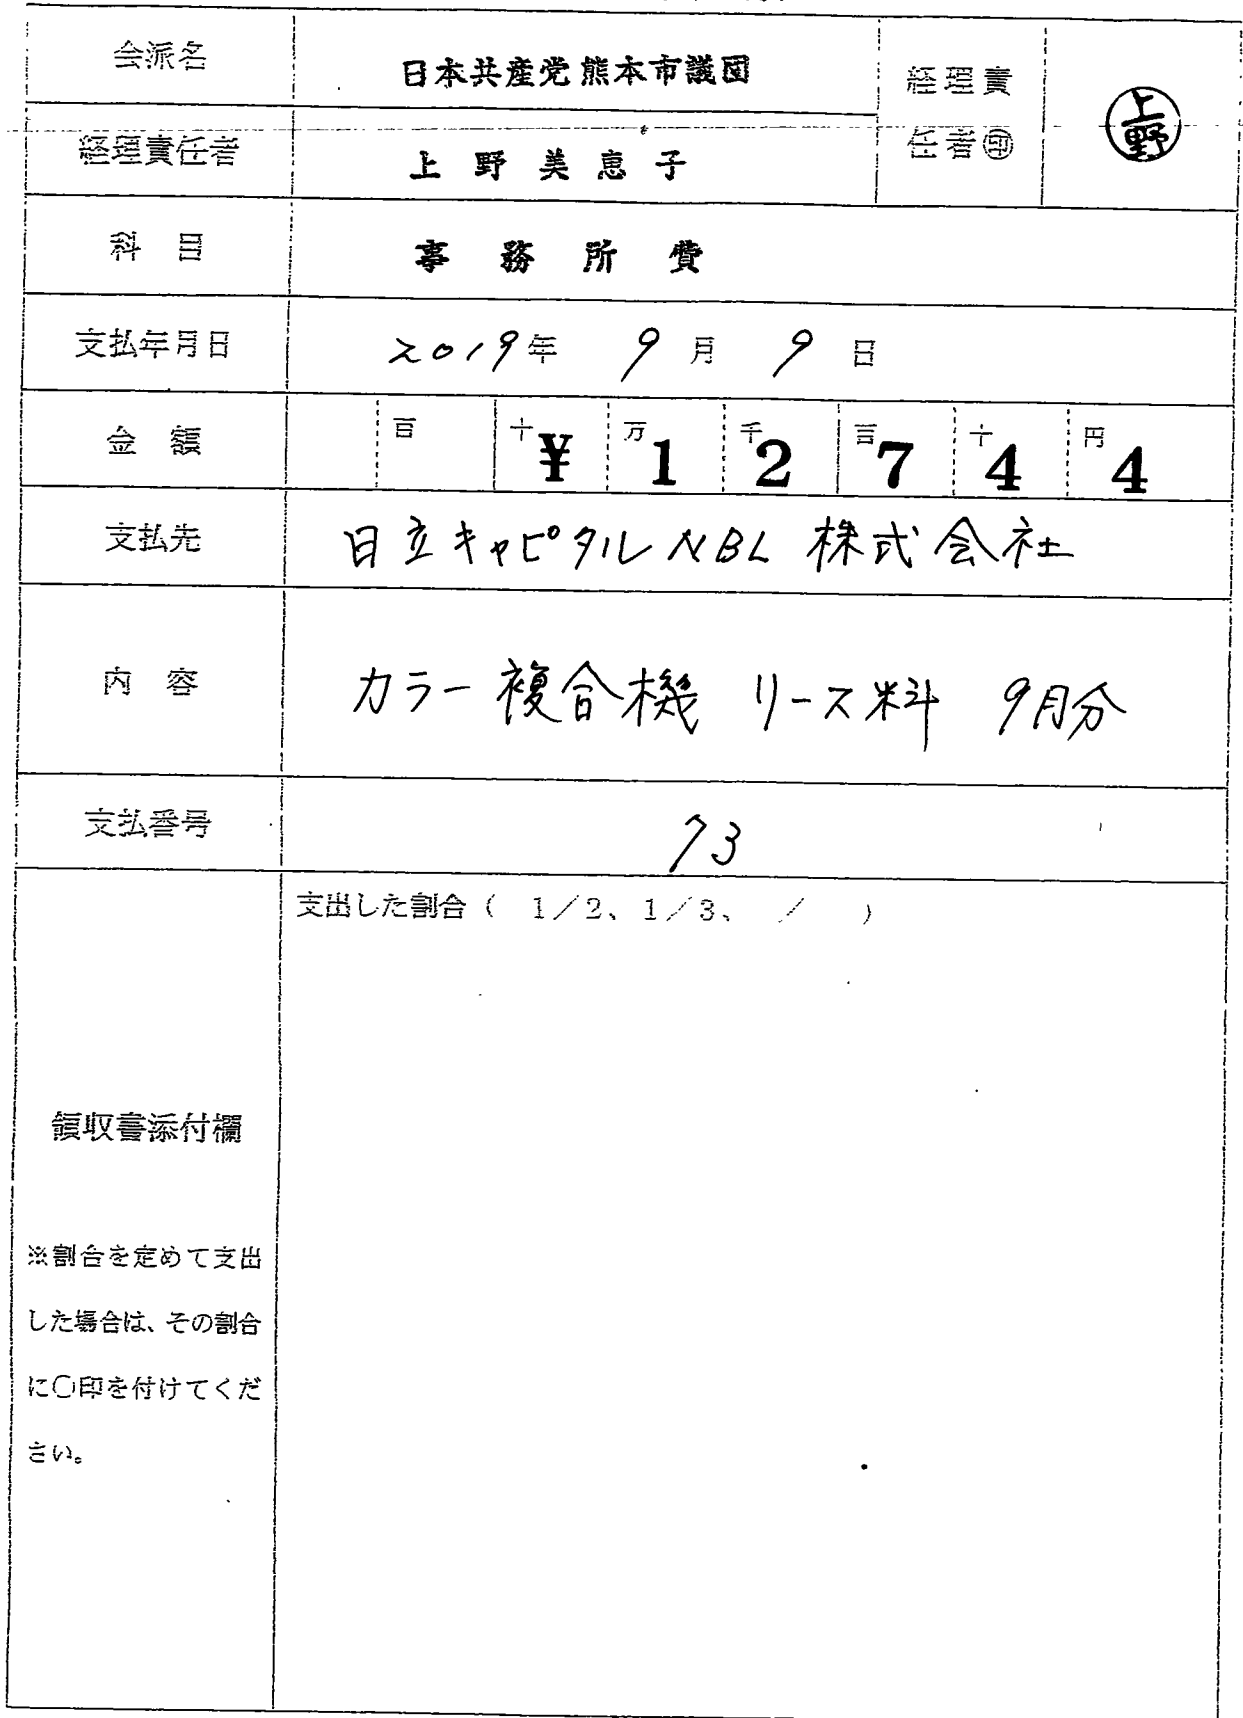 会派名 日本共産党熊本市議団 経理責
任者㊞ 上野
経理責任者 上野美恵子
科目 事務所費
支払年月日 2019年 9月 9日
金額 百 十 万 千 百 十 円
¥12744
支払先 日立キャピタルNBL株式会社
内容 カラー複合機 リース料 9月分
支払番号 73
支出した割合( 1/2、1/3、 / )
領収書添付欄
※割合を定めて支出
した場合は、その割合
に○印を付けてくだ
さい。